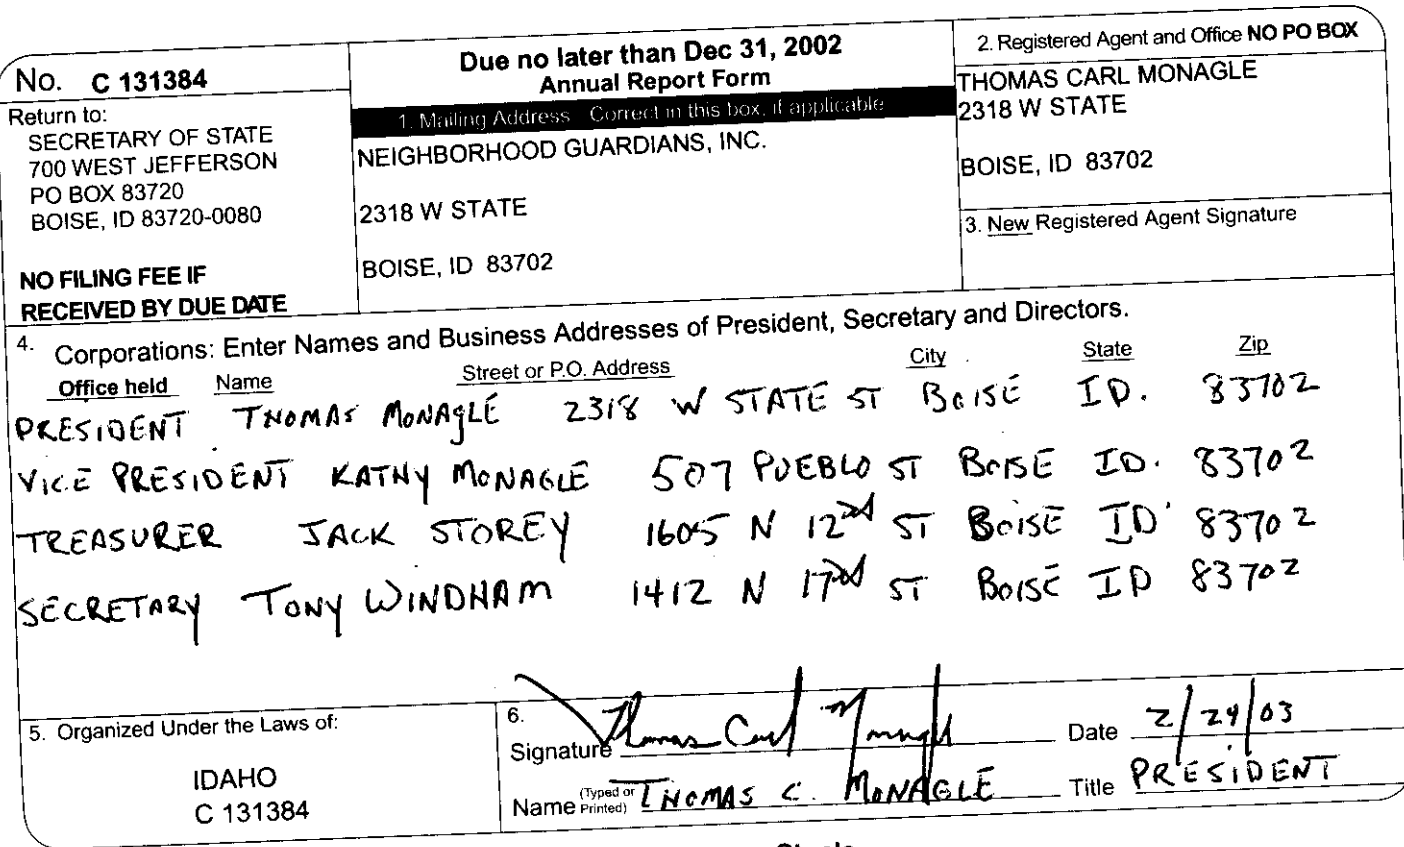 No. C 131384
Return to:
SECRETARY OF STATE
700 WEST JEFFERSON
PO BOX 83720
BOISE, ID 83720-0080
NO FILING FEE IF
RECEIVED BY DUE DATE
Due no later than Dec 31, 2002
Annual Report Form
1. Mailing Address Correct in this box, if applicable
NEIGHBORHOOD GUARDIANS, INC.
2318 W STATE
BOISE, ID 83702
2. Registered Agent and Office NO PO BOX
THOMAS CARL MONAGLE
2318 W STATE
BOISE, ID 83702
3. New Registered Agent Signature
4. Corporations: Enter Names and Business Addresses of President, Secretary and Directors.
Office held Name Street or P.O. Address City State Zip
PRESIDENT THOMAS MONAGLE 2318 W STATE ST BOISE ID. 83702
VICE PRESIDENT KATHY MONAGLE 507 PUEBLO ST BOISE ID. 83702
TREASURER JACK STOREY 1605 N 12nd ST BOISE ID 83702
SECRETARY TONY WINDHAM 1412 N 17nd ST BOISE ID 83702
5. Organized Under the Laws of:
IDAHO
C 131384
6.
Signature Thomas Carl Monagle Date 2/24/03
Name (Typed or Printed) THOMAS C. MONAGLE Title PRESIDENT